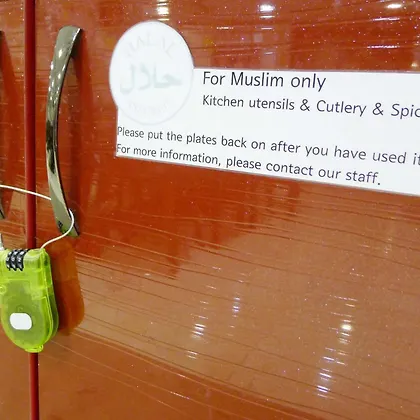 HALAL
حلال
For Muslim only
Kitchen utensils & Cutlery & Spic
Please put the plates back on after you have used it
For more information, please contact our staff.